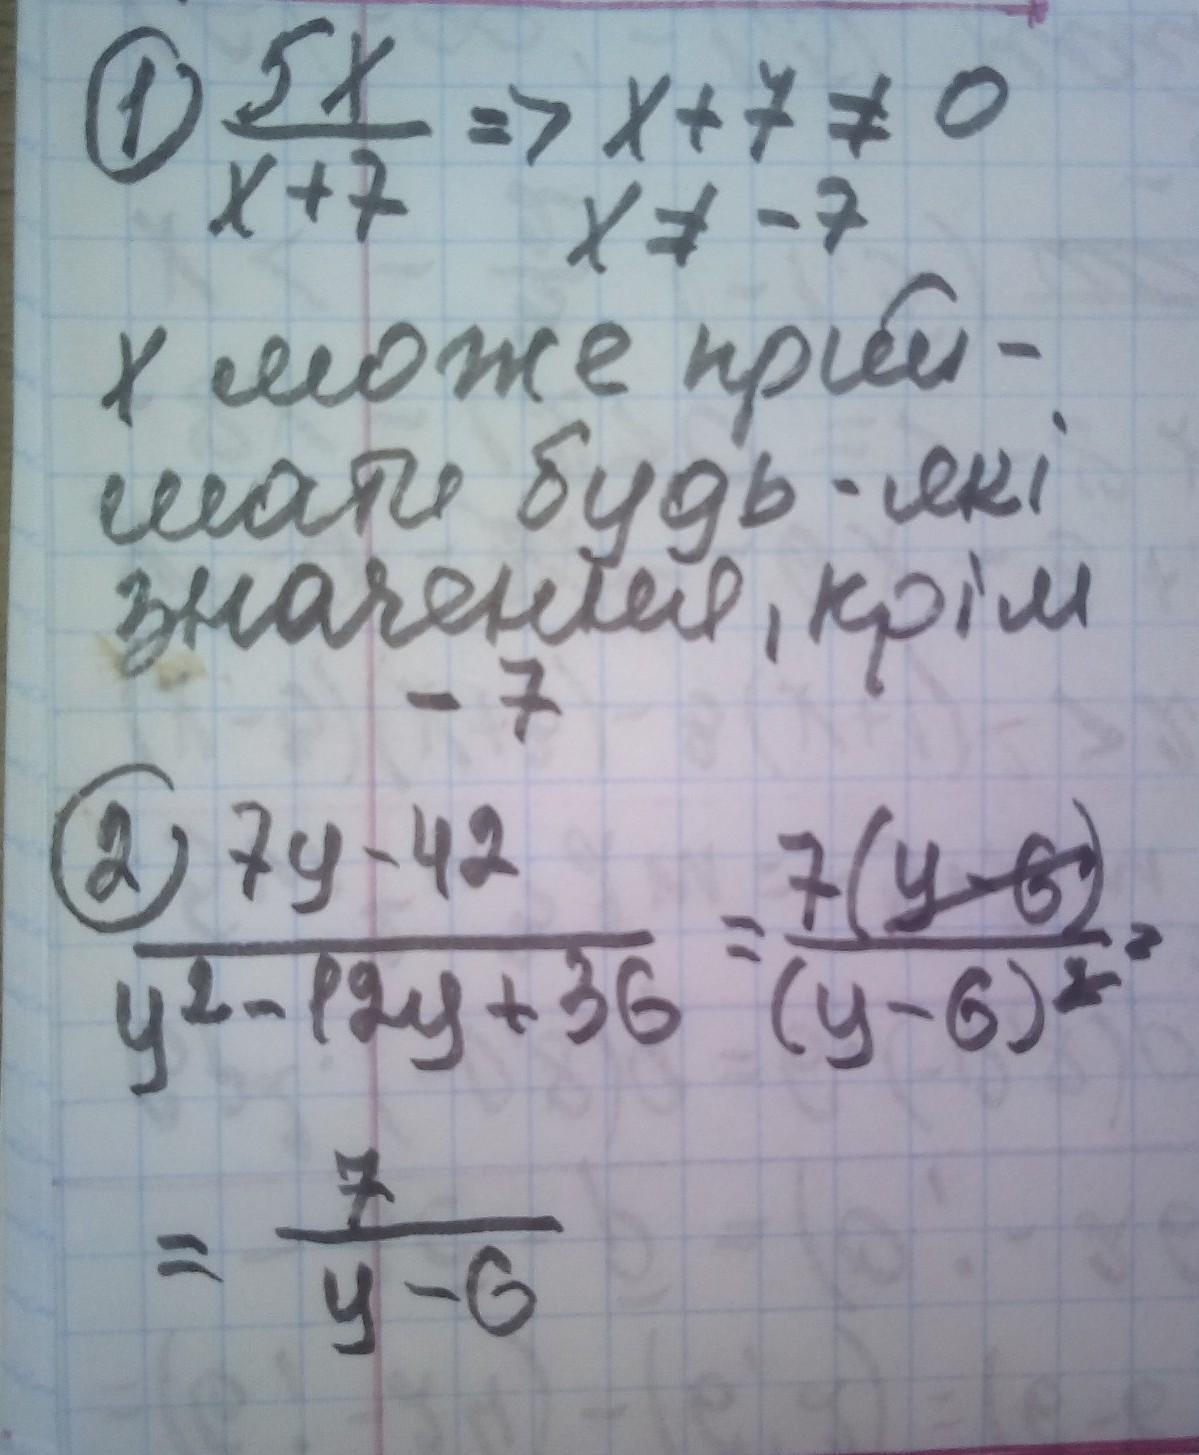 1) 5x/(x+7) => x+7 ≠ 0
x ≠ -7
x може прий-
мати будь-які
значення, крім
-7
2) (7y-42)/(y²-12y+36) = 7(y-6)/(y-6)² =
= 7/(y-6)